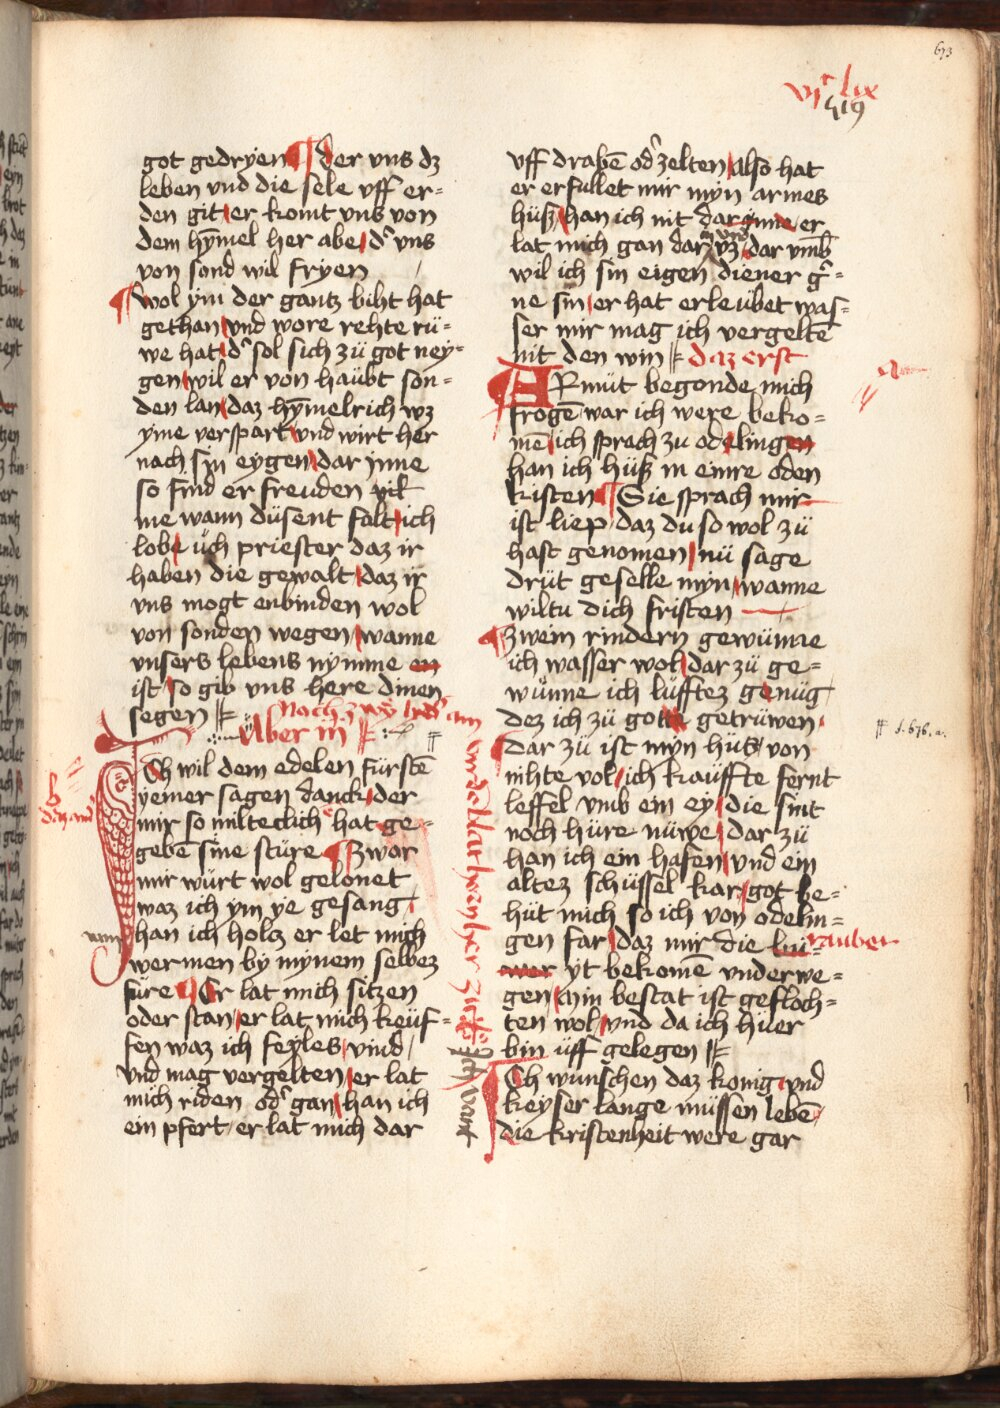 673
vjc lix
519
got gedryen der vns dz
leben vnd die sele vff er=
den git er komt vns von
dem hȳmel her abe d' vns
von sond wil fryen
wol ym der gantz biht hat
gethan vnd wore rehte rü=
we hat d' sol sich zü got ney=
gen wil er von haübt son=
den lan daz hȳmelrich wz
yme verspart vnd wirt her
nach sin eygen dar jnne
so find er freuden vil
me wann düsent falt ich
lobe üch priester daz ir
haben die gewalt daz ir
vns mogt enbinden wol
von sonden wegen wanne
vnsers lebens nymme en
ist so gib vns here dinen
segen
Aber in
Ich wil dem edelen fürstē
yemer sagen danck der
mir so milteclich hat ge=
gebē sine stüre Zwor
mir würt wol gelonet
waz ich ym ye gesang
han ich holcz er let mich
wermen by mynem selbez
füre Er lat mich sitzen
oder stan er lat mich keüf=
fen waz ich feyles vind
vnd mag vergelten er lat
mich riden od' gan han ich
ein pfert er lat mich dar
vff drabē od' zelten Also hat
er erfullet mir myn armes
hüß han ich nit dar jnne er
lat mich gan dar vz dar vmb
wil ich sin eigen diener g'=
ne sin er hat erleubet was=
ser mir mag ich vergeltē
nit den win daz erst
ARmüt begonde mich
frogē war ich were beko=
mē ich sprach zu odelingen
han ich hüß in eime oden
kisten Sie sprach mir
ist liep daz du so wol zü
hast genomen nü sage
drüt geselle myn wanne
wiltu dich fristen
Zwein rindern gewünne
ich wasser wol dar zü ge=
wünne ich lüfftez genüg
dez ich zü gotte getrüwen
dar zü ist myn hüs von
nihte vol ich kaüffte fernt
leffel vmb ein ey die sint
noch hüre nüwe dar zü
han ich ein hafen vnd ein
altez schüssel kar got be=
hüt mich so ich von odelin=
gen far daz mir die rauber
yt bekomē vnderwe=
gen Min bestat ist gefloch=
ten wol vnd da ich hüer
bin üff gelegen
Ich wunschen daz konig vnd
keyser lange müssen lebē
die kristenheit were gar
f. 676. a.